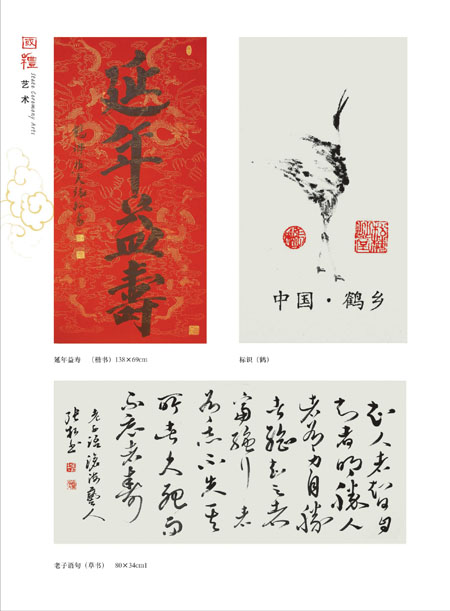 国礼
艺术
State Ceremony Arts
延年益寿
中国·鹤乡
延年益寿 (楷书) 138×69cm
标识(鹤)
知人者智自
知者明胜人
者有力自胜
者强知足者
富强行者
有志不失其
所者久死而
不亡者寿
老子语 沧海艺人
张松书
老子语句(草书) 80×34cm1